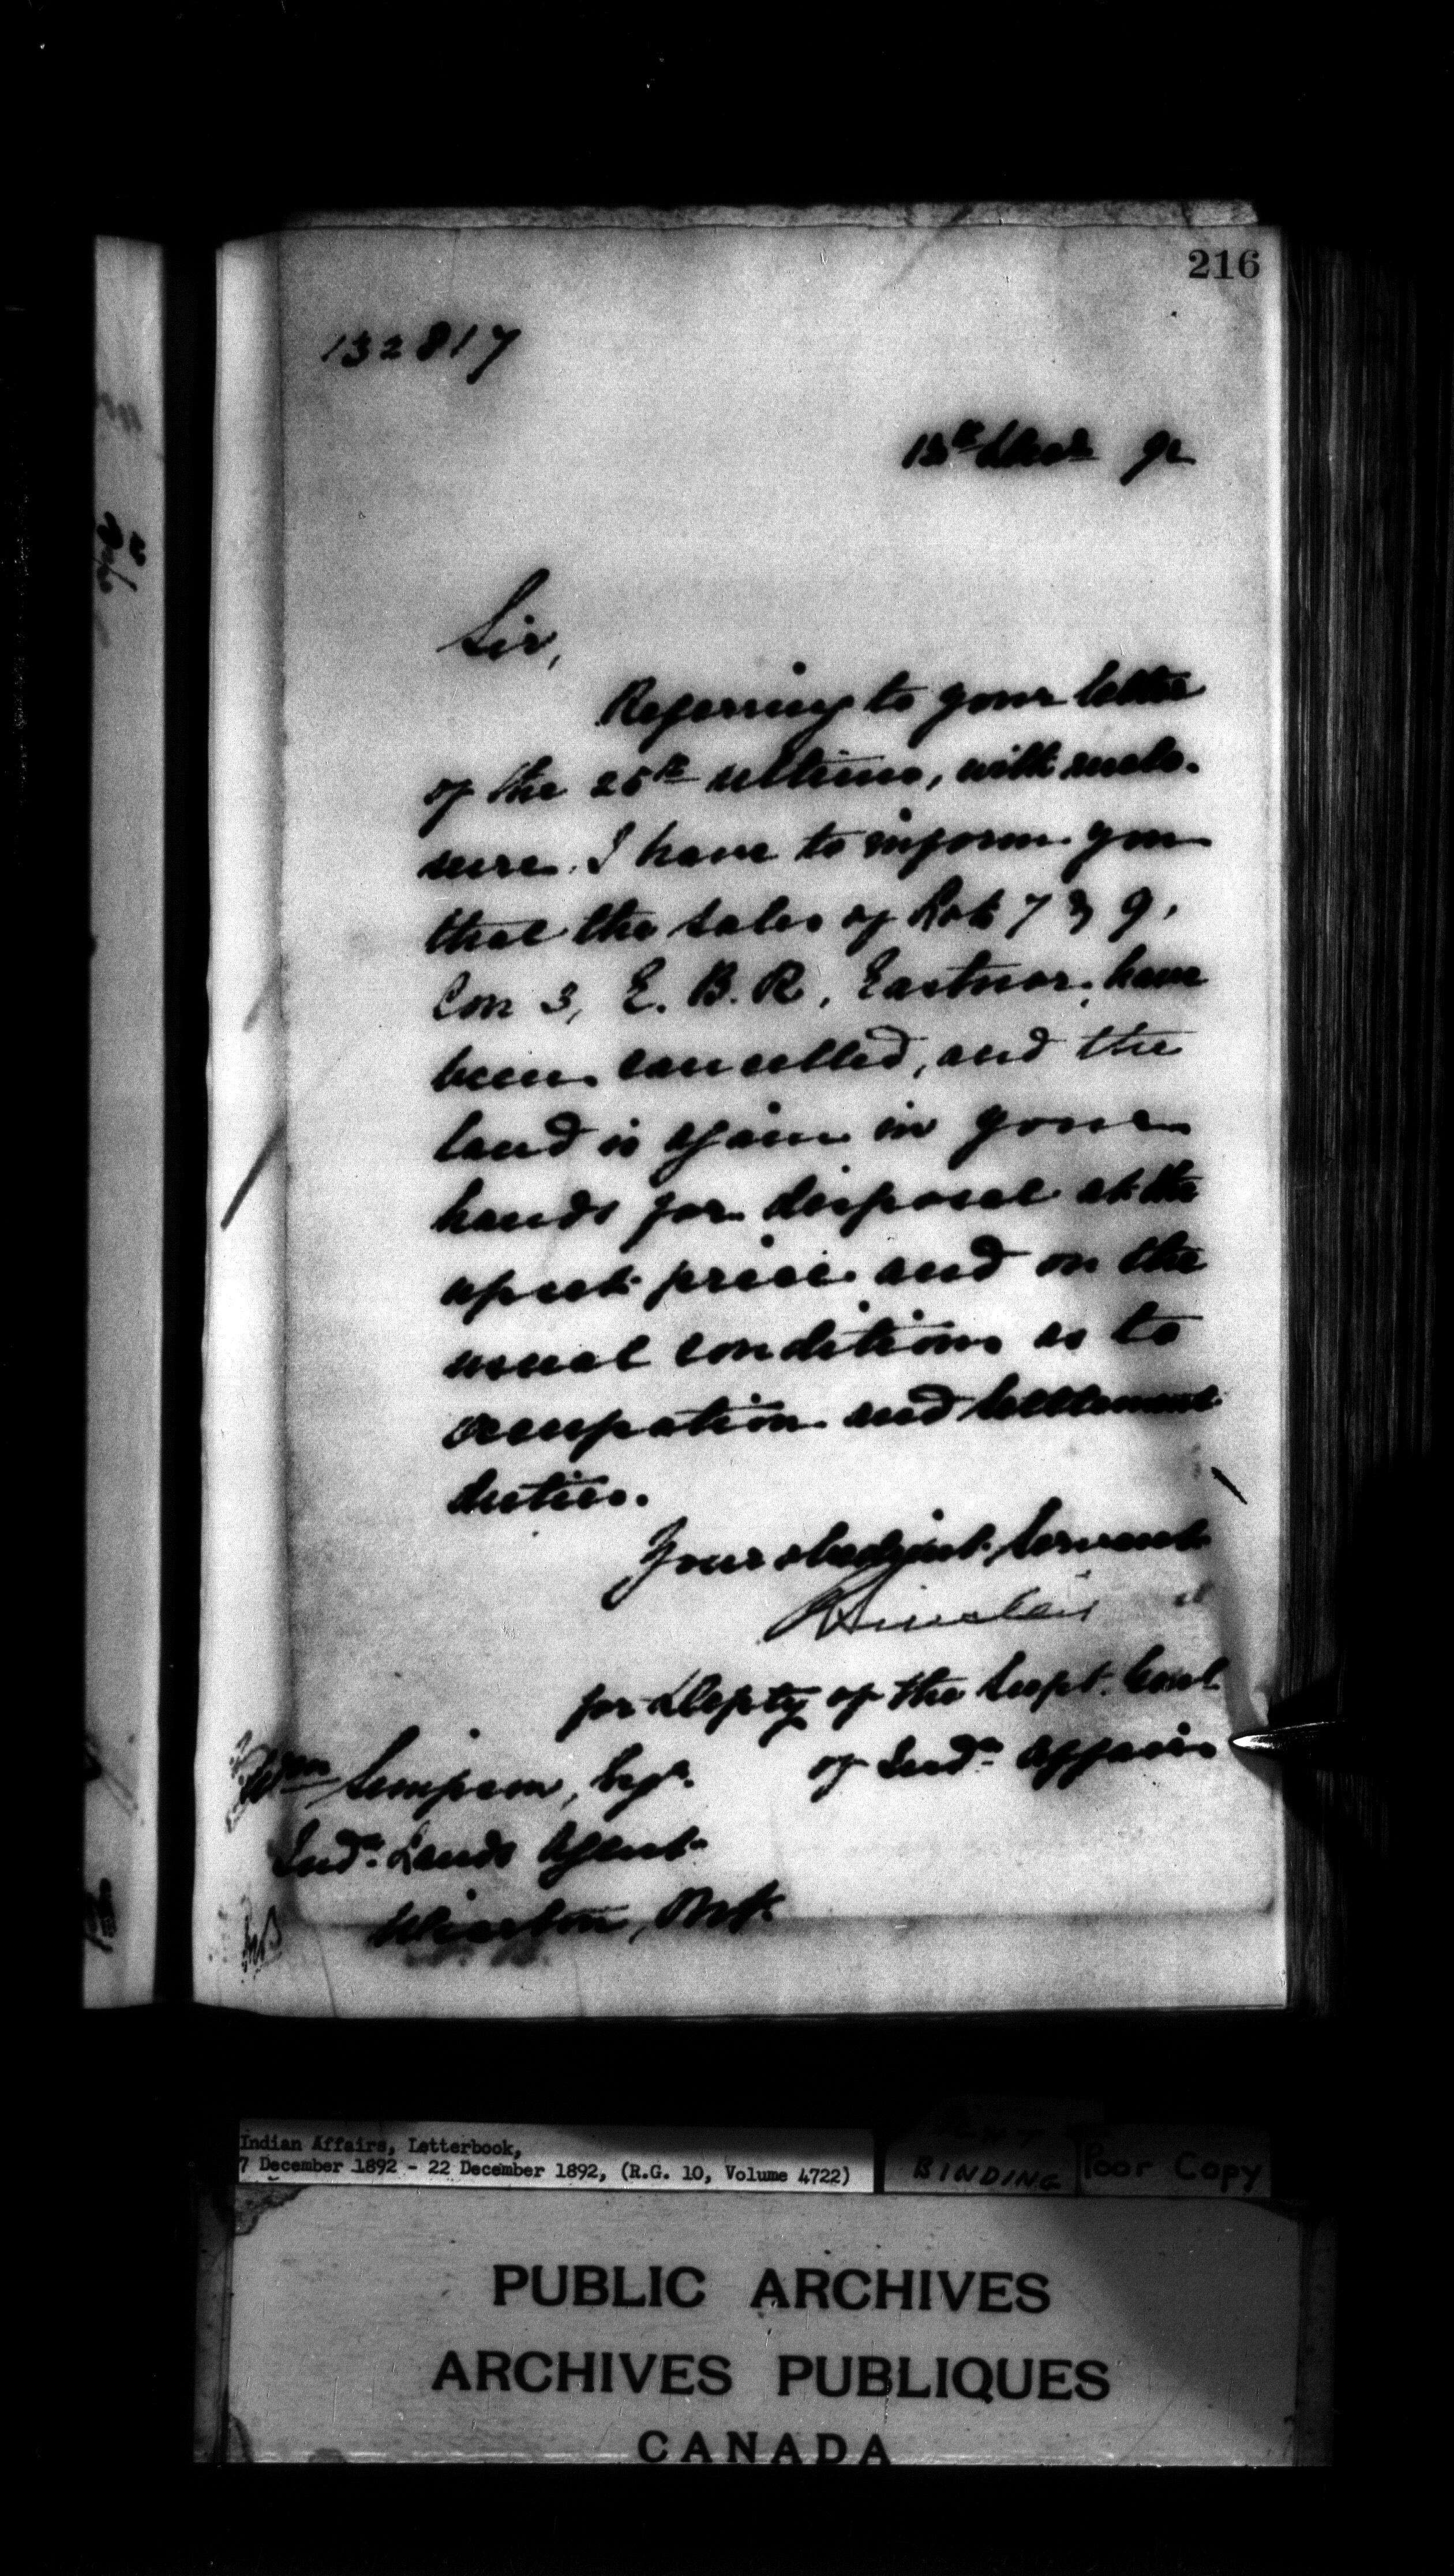 216
132817
Decr 92
Sir,
Referring to your letter
of the 25th ultimo, with enclo-
sure. I have to inform you
that the sales of Lots 7 & 9,
Con 3, E. B. R, Eastnor, have
been cancelled, and the
land is again in your
hands for disposal at the
upset price and on the
usual conditions as to
occupation and settlement
duties.
Your obedient servant
for Depty of the Supt. Genl
of Indn Affairs
Wm Simpson, Esqr.
Indn Lands Agent
Wiarton, Ont.
Indian Affairs, Letterbook,
7 December 1892 - 22 December 1892, (R.G. 10, Volume 4722)
BINDING
Poor Copy
PUBLIC ARCHIVES
ARCHIVES PUBLIQUES
CANADA